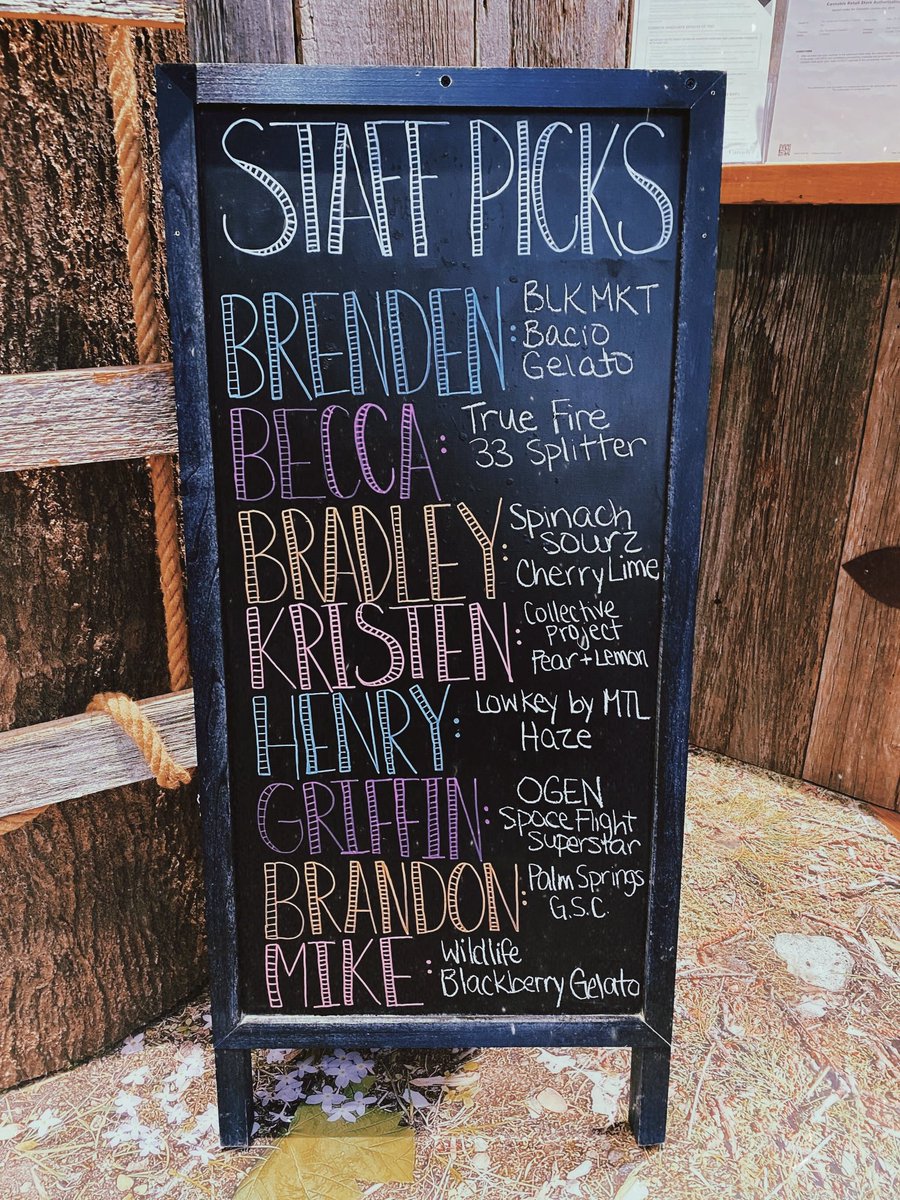 STAFF PICKS
BRENDEN: BLK MKT
Bacio
Gelato
BECCA: True Fire
33 Splitter
BRADLEY: Spinach
sourz
Cherry Lime
KRISTEN: Collective
Project
Pear + Lemon
HENRY: Lowkey by MTL
Haze
GRIFFIN: OGEN
Space Flight
Superstar
BRANDON: Palm Springs
G.S.C.
MIKE: Wildlife
Blackberry Gelato
Cannabis Retail Store Authorization